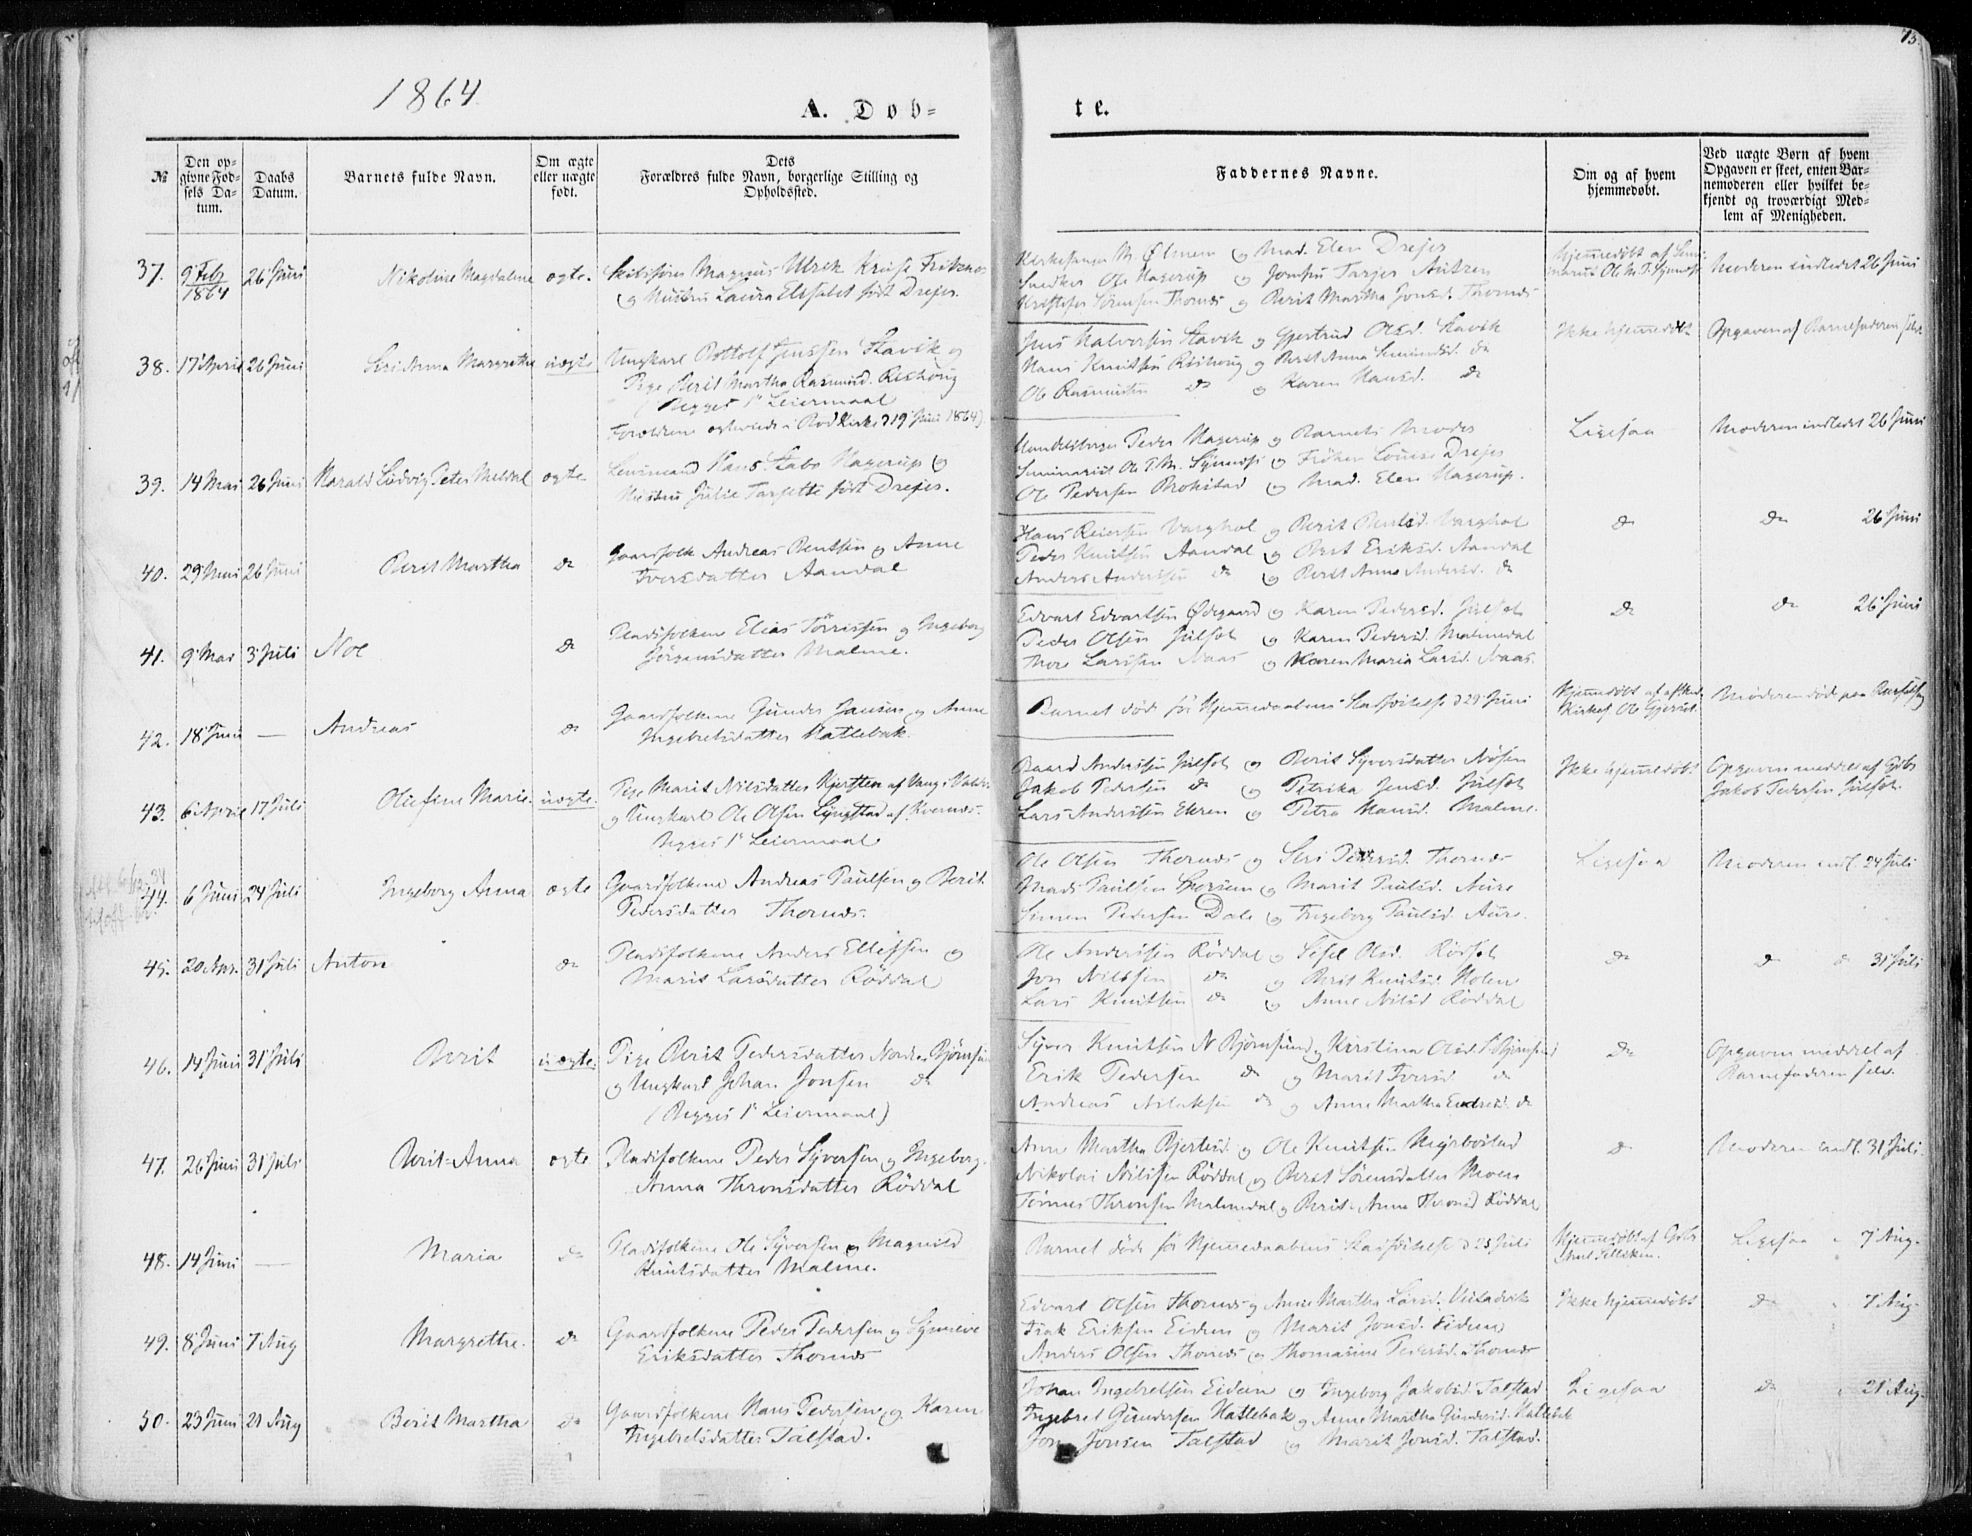 73.
1864
A. Døb=
te.
№
Den opgivne Fødsels Datum.
Daabs Datum.
Barnets fulde Navn.
Om ægte eller uægte født.
Dets Forældres fulde Navn, borgerlige Stilling og Opholdssted.
Faddernes Navne.
Om og af hvem hjemmedøbt.
Ved uægte Børn af hvem Opgaven er skeet, enten Barnemoderen eller hvilket bekjendt og troværdigt Medlem af Menigheden.
37. 9 Feb 1864 26 Juni Nikoline Magdalene ægte.
Skibsfører Magnus Ulrik Kruse
og Hustru Laura Elisabet født Drejer.
Kirkesanger M. Ølmem og Mad. Elen Drejer
Snedker Ole Hagerup og Jomfru
Kristofer Sørensen Thornes og Berit Martha Jonsd. Thornes
Moderen indledet 26 Juni
38. 17 April 26 Juni Anna Margrethe uægte
Ungkarl Rottolf Jenssen Stavik og
Pige Berit Martha Rasmusd. Rishoug
(Begges 1ste Leiermaal
Forældrene ægteviede i Bod Kirke d 19 Juni 1864)
Jens Halvorsen Stavik og Gjertrud Olsd. Stavik
Hans Knutsen Rishoug og Berit Anna do
Ole Rasmussen do og Karen Hansd. do
Ikke hjemmedøbt
Opgaven af Barnefaderen selv.
39. 14 Mai 26 Juni Harald Ludvig Peter Meldal ægte
Lensmand Hans Stabo Hagerup og
Hustru Julie født Drejer.
Handelsborger Peder Hagerup og Barnets Moder
Seminarist Ole T. M. og Frøken Louise Drejer
Ole Pedersen Brokstad og Mad. Elen Hagerup.
Ligesaa
Moderen indledet 26 Juni
40. 29 Mai 26 Juni Berit Martha do
Gaardfolk Andreas Bentsen og Anne
Iversdatter Aandal
Hans Reiersen Varghol og Berit Bentsd. Varghol
Peder Knutsen Aandal og Berit Eriksd. Aandal
Anders Andersen do og Berit Anne Andersd. do
do
do 26 Juni
41. 9 Mai 3 Juli Noe do
Pladsfolkene Elias Tørrissen og Ingeborg
Jørgensdatter Malme.
Edvart Edvartsen Ødegaard og Karen Pedersd. Julset
Peder Olsen Julset og Karen Pedersd. Malmedal
Thore Larssen Naas og Karen Maria Larsd. Naas.
do
do 26 Juni
42. 18 Juni — Andreas do
Gaardfolkene Gunder Jansen og Anne
Ingebretsdatter Hatlebak.
Barnet død før Hjemmedaabens Stadfæstelse d 29 Juni
43. 6 April 17 Juli Olufine Marie uægte.
Pige Marit Nilsdatter Kjersten af Vang i Valders
og Ungkarl Ole Olsen Lyngstad af Kvernæs.
Begges 1ste Leiermaal
Baard Andersen Julset og Berit Syversdatter Nøsen
Jakob Pedersen do og Petrika Jensd. Julset
Lars Andersen Ekren og Petra Hansd. Malme.
Ikke hjemmedøbt
Opgaven meddelt af Gbr.
Jakob Pedersen Julset.
44. 6 Juni 24 Juli Ingeborg Anna ægte
Gaardfolkene Andreas Paulsen og Berit
Pedersdatter Thornes.
Ole Olsen Thornes og Pedersd. Thornes
Mads Paulsen og Marit Paulsd. Aure
Simen Pedersen Dale og Ingeborg Paulsd. Aure.
Ligesaa
Moderen indl. 24 Juli
45. 20 Apr. 31 Juli Anton do
Pladsfolkene Anders Ellefsen og
Marit Larsdatter Røddal
Ole Anderssen Røddal og Sesel Olsd. Rødset
Jon Nilssen do og Berit Knutsd. Holen
Lars Knutsen do og Anne Nilsd Røddal
do
do 31 Juli
46. 14 Juni 31 Juli Berit uægte.
Pige Berit Pedersdatter Nordre Bjørnsund
og Ungkarl Johan Jonsen do
(Begges 1ste Leiermaal)
Syver Knutsen N Bjørnsund og Kristina Olsd.
Erik Pedersen do og Marit Iversd. do
Andreas do og Anne Martha do
do
Opgaven meddelt af
Barnefaderen selv.
47. 26 Juni 31 Juli Berit-Anna ægte
Pladsfolkene Peder Syversen og Ingeborg-
Anna Thronsdatter Røddal
Anne Martha og Ole Knutsen
Nikolai Nilssen Røddal og Berit Sørensdatter Moen
Tønnes Thronsen Malmedal og Berit-Anna Thronsd Røddal
do
Moderen indl. 31 Juli.
48. 14 Juni — Maria do
Pladsfolkene Ole Syversen og Magnild
Knutsdatter Malme.
Barnet døde før Hjemmedaabens Stadfæstelse d 25 Juli
Ligesaa 7 Aug.
49. 8 Juni 7 Aug Margrethe. do
Gaardfolkene Peder Pedersen og Synneve
Eriksdatter Thornes
Edvart Olsen Thornes og Anne Martha Larsd.
Isak Eriksen Eidem og Marit Jonsd. Eidem
Anders Olsen Thornes og Thomasine Pedersd. Thornes
Ikke hjemmedøbt
do 7 Aug.
50. 23 Juni 21 Aug Berit Martha do
Gaardfolkene Hans Pedersen og Karen
Ingebretsdatter Talstad.
Johan Ingebretsen Eidem og Ingeborg Jakobsd. Talstad
Ingebret Gundersen Hatlebak og Anne Martha Gundersd. Hatlebak
Jon Jonsen Talstad og Marit Jonsd. Talstad.
Ligesaa
do 21 Aug.